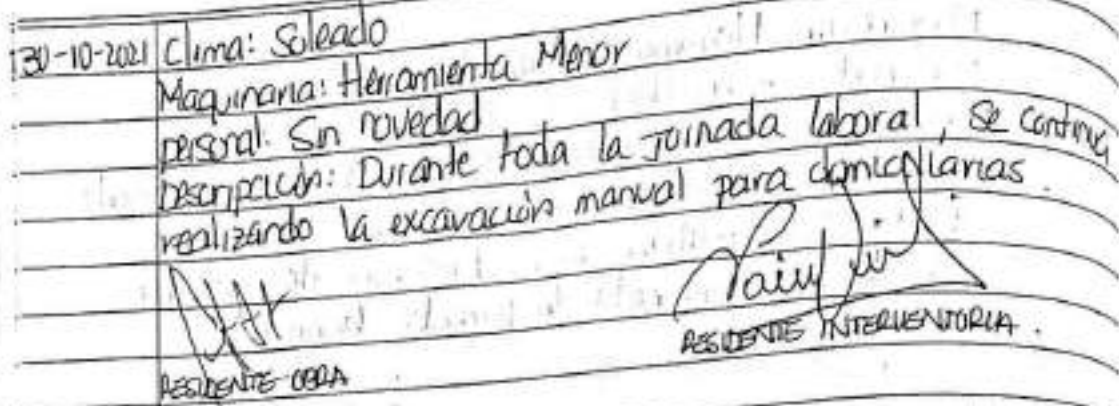 30-10-2021 Clima: Soleado
Maquinaria: Herramienta Menor
personal: Sin novedad
Descripción: Durante toda la jornada laboral, se continua
realizando la excavación manual para domiciliarias.
RESIDENTE OBRA
RESIDENTE INTERVENTORIA.